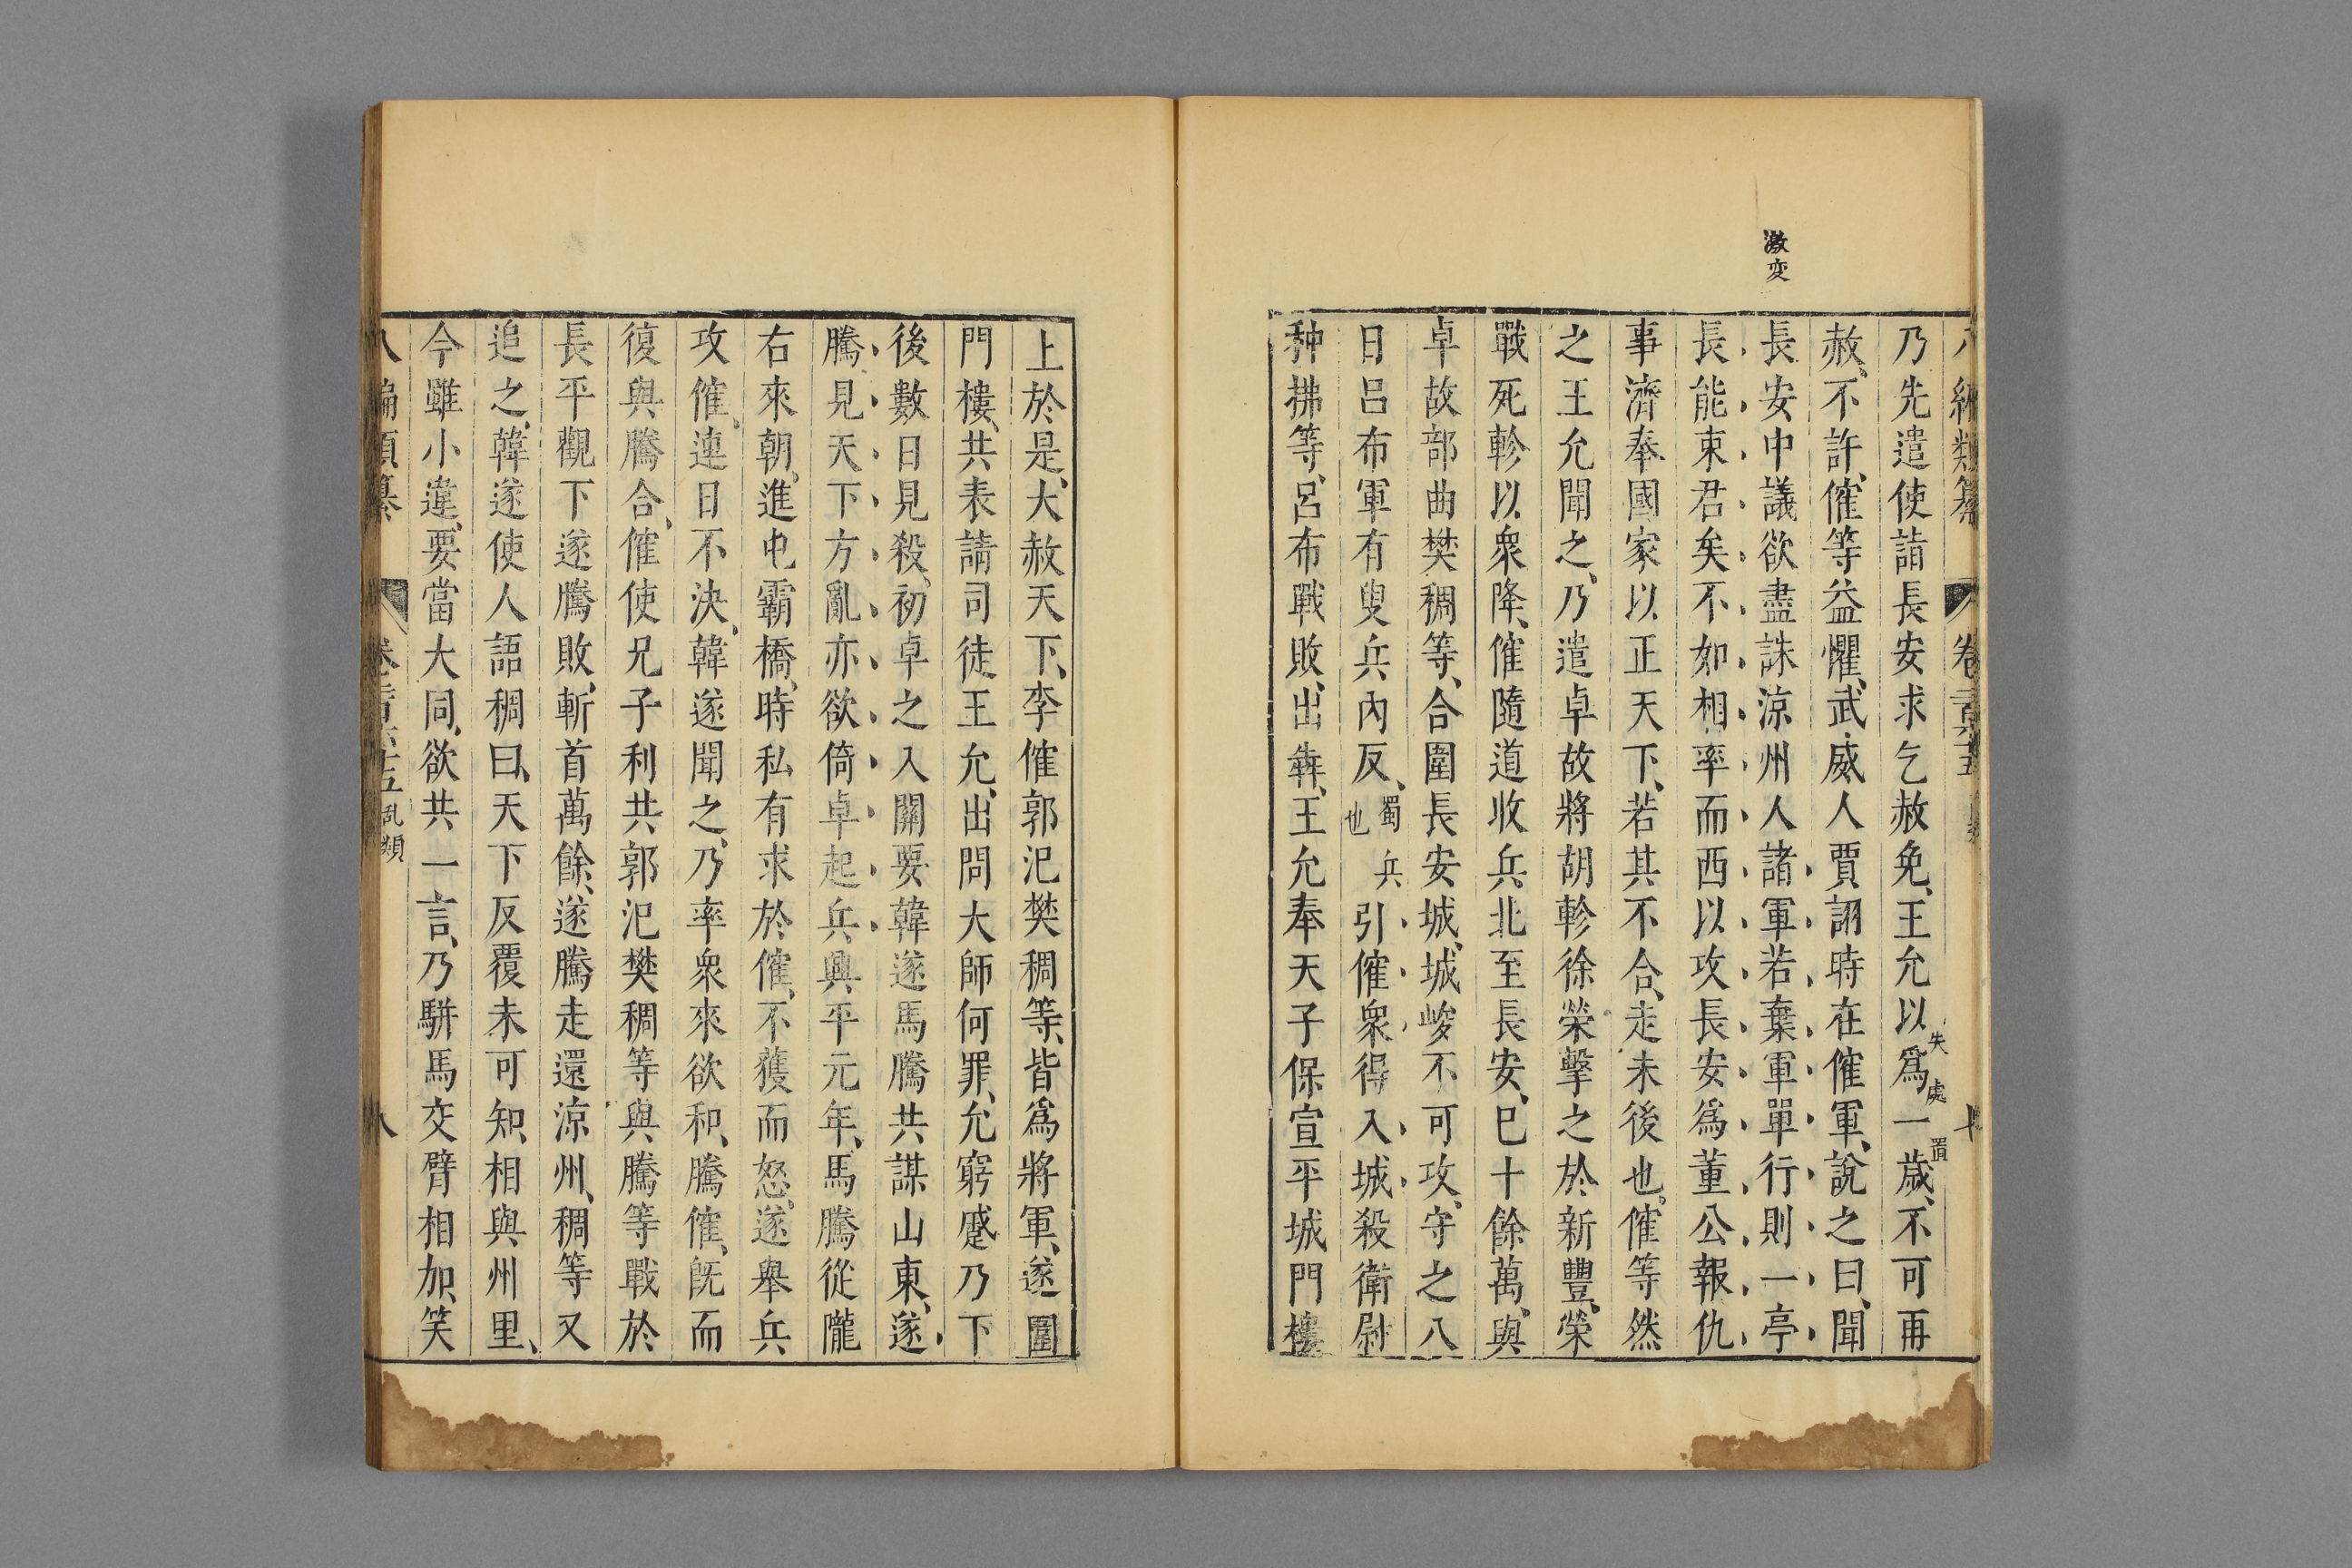 激変
乃先遣使詣長安求乞赦免王允以爲一歲不可再
失處置
赦不許傕等益懼武威人賈詡時在傕軍說之曰聞
長安中議欲盡誅涼州人諸軍若棄軍單行則一亭
長能束君矣不如相率而西以攻長安爲董公報仇
事濟奉國家以正天下若其不合走未後也傕等然
之王允聞之乃遣卓故將胡軫徐榮擊之於新豐榮
戰死軫以衆降傕隨道收兵北至長安巳十餘萬與
卓故部曲樊稠等合圍長安城城峻不可攻守之八
日呂布軍有叟兵內反蜀兵也引傕衆得入城殺衛尉
种拂等呂布戰敗出犇王允奉天子保宣平城門樓
上於是大赦天下李傕郭汜樊稠等皆爲將軍遂圍
門樓共表請司徒王允出問大師何罪允窮蹙乃下
後數日見殺初卓之入關要韓遂馬騰共謀山東遂
騰見天下方亂亦欲倚卓起兵興平元年馬騰從隴
右來朝進屯霸橋時私有求於傕不獲而怒遂舉兵
攻傕連日不決韓遂聞之乃率衆來欲和騰傕旣而
復與騰合傕使兄子利共郭汜樊稠等與騰等戰於
長平觀下遂騰敗斬首萬餘遂騰走還涼州稠等又
追之韓遂使人語稠曰天下反覆未可知相與州里
今雖小違要當大同欲共一言乃駢馬交臂相加笑
八編類纂 卷 五 乱類 八